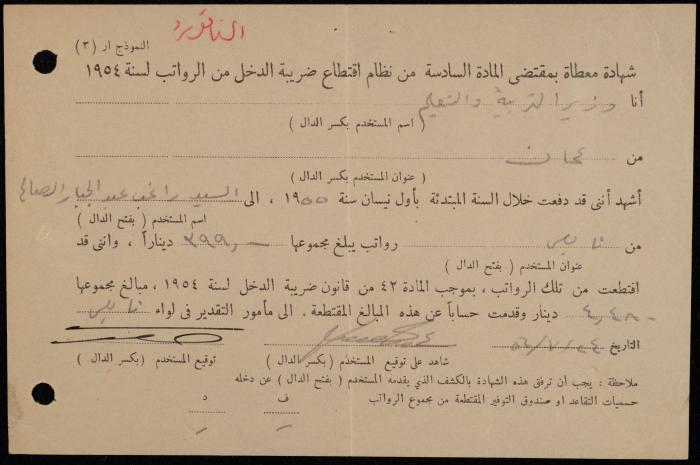 النموذج ار (٣)
شهادة معطاة بمقتضى المادة السادسة من نظام اقتطاع ضريبة الدخل من الرواتب لسنة ١٩٥٤
أنا وزير التربية والتعليم
( اسم المستخدم بكسر الدال )
من عمان
( عنوان المستخدم بكسر الدال )
أشهد أننى قد دفعت خلال السنة المبتدئة بأول نيسان سنة ١٩٥٥ ، الى السيد راغب عبد الجبار
اسم المستخدم ( بفتح الدال )
من نابلس رواتب يبلغ مجموعها ٣٩٩,- ديناراً ، واننى قد
عنوان المستخدم ( بفتح الدال )
اقتطعت من تلك الرواتب ، بموجب المادة ٤٢ من قانون ضريبة الدخل لسنة ١٩٥٤ ، مبالغ مجموعها
٤,٤٨٠ دينار وقدمت حساباً عن هذه المبالغ المقتطعة . الى مأمور التقدير فى لواء نابلس
التاريخ ٥٦/٧/٢٤
شاهد على توقيع المستخدم ( بكسر الدال ) توقيع المستخدم (بكسر الدال )
ملاحظة : يجب أن ترفق هذه الشهادة بالكشف الذي يقدمه المستخدم ( بفتح الدال ) عن دخله
حسميات التقاعد او صندوق التوفير المقتطعة من مجموع الرواتب ف د